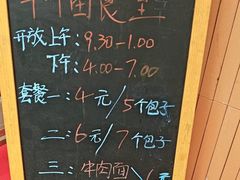 食堂
开放上午: 9.30-1.00
下午: 4.00-7.00
套餐一: 4元/5个包子
二: 6元/7个包子
三: 牛肉面